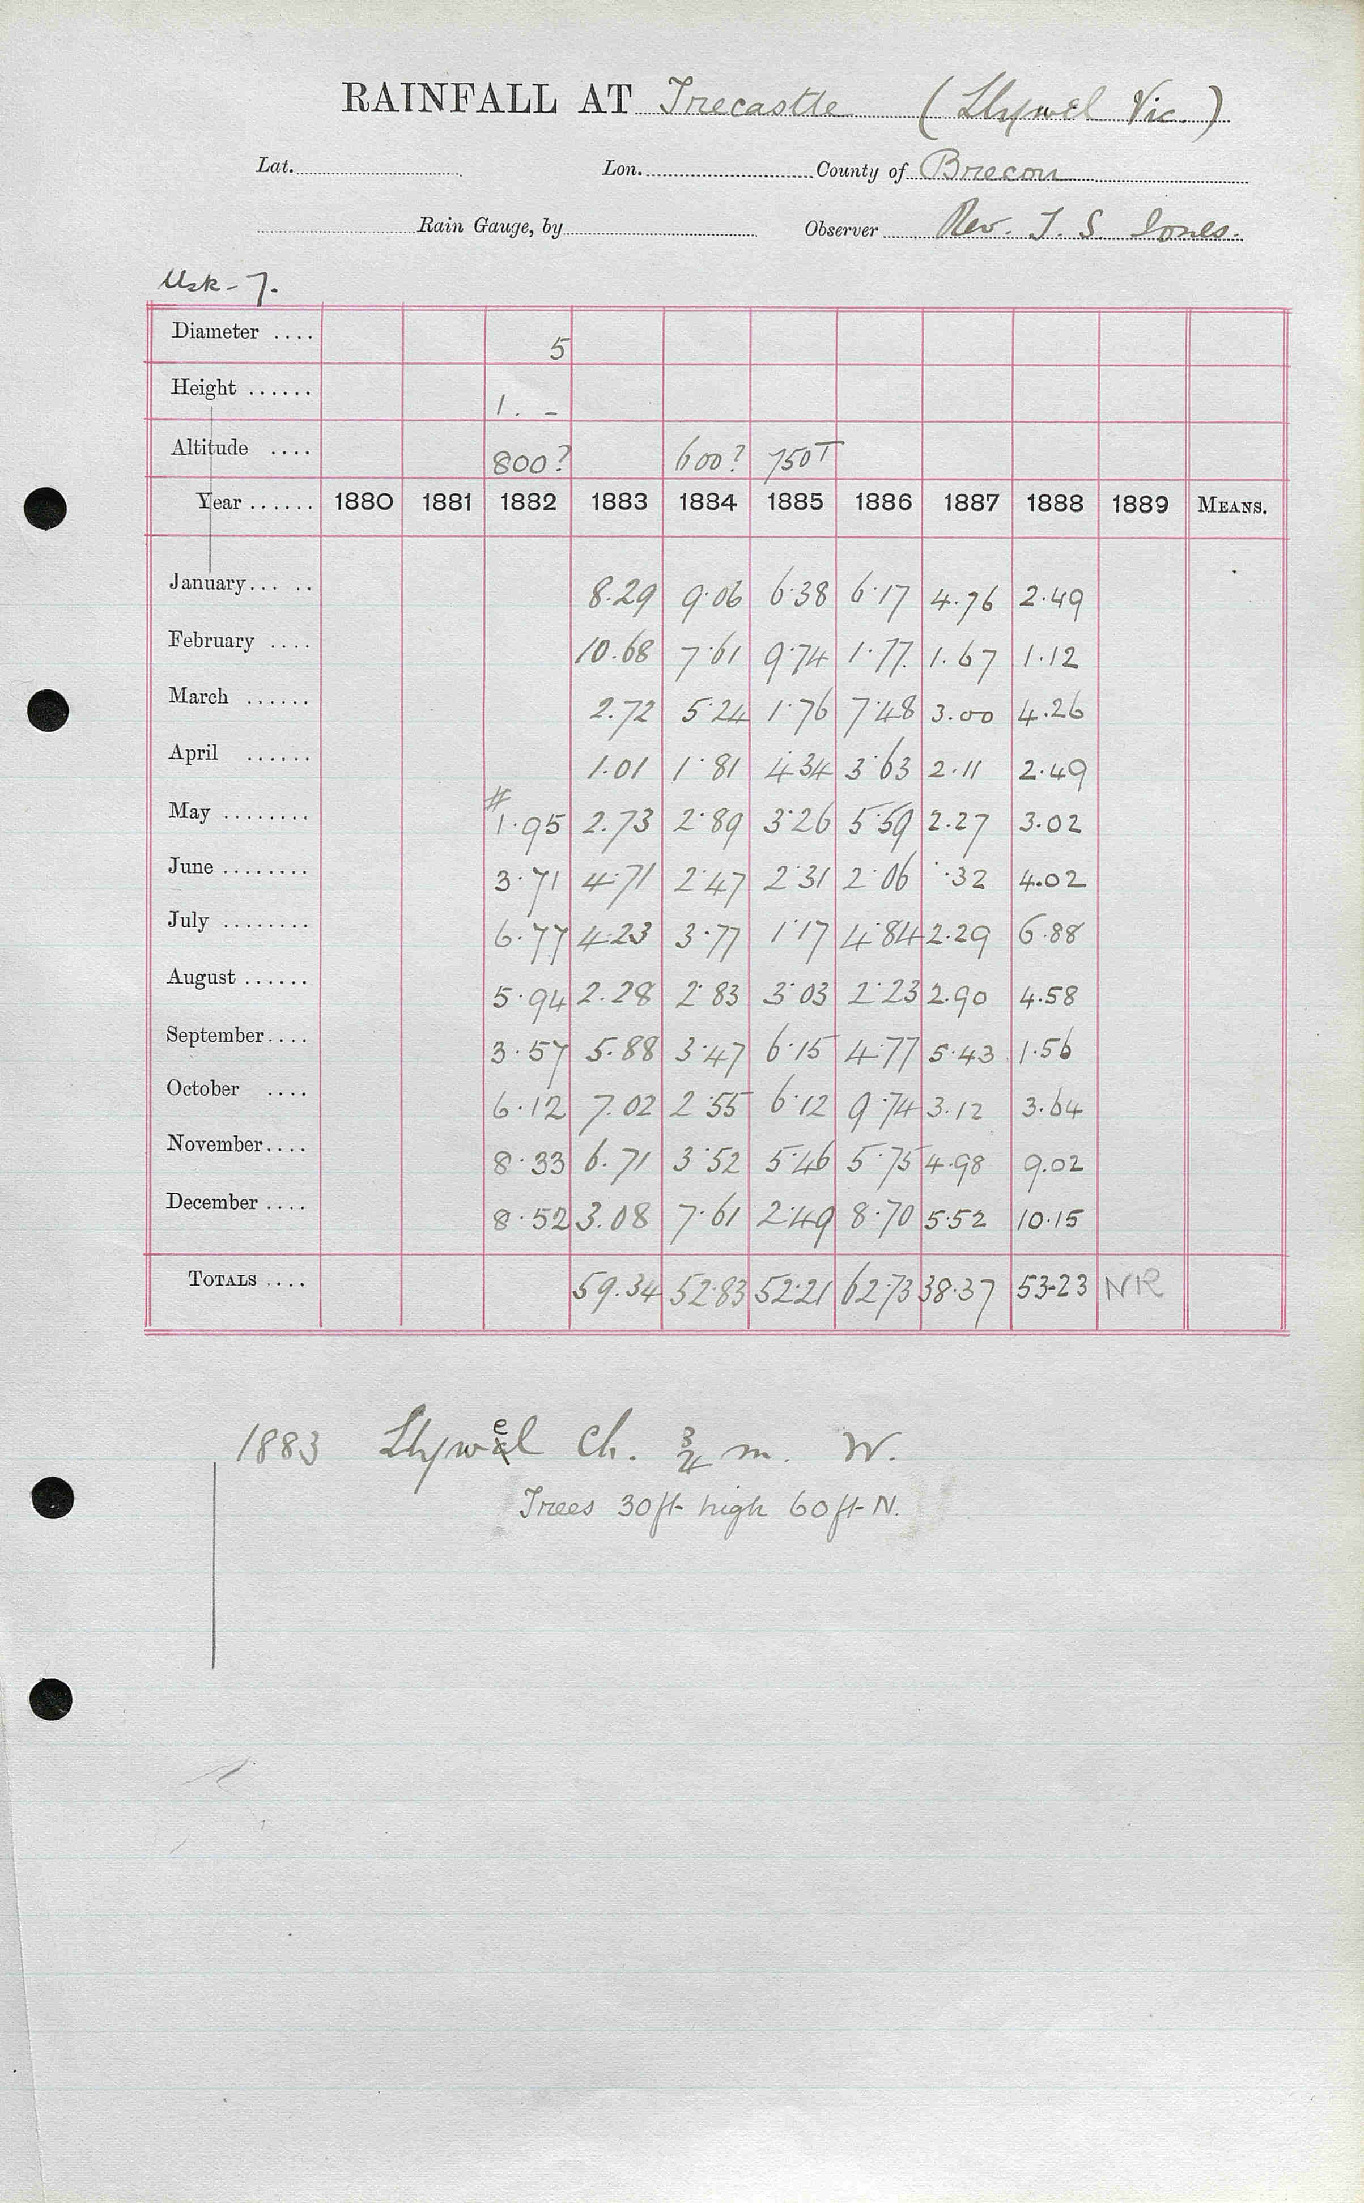 RAINFALL AT Trecastle (Llywel Vic.)
Lat. Lon. County of Brecon
Rain Gauge, by Observer Rev. T. S. Jones.
Usk - 7.
Diameter .... 5
Height ...... 1. -
Altitude .... 800? 600? 750T
Year ...... 1880 1881 1882 1883 1884 1885 1886 1887 1888 1889 MEANS.
January... .. 8.29 9.06 6.38 6.17 4.76 2.49
February .... 10.68 7.61 9.74 1.77 1.67 1.12
March ...... 2.72 5.24 1.76 7.48 3.00 4.26
April ...... 1.01 1.81 4.34 3.63 2.11 2.49
May ........ # 1.95 2.73 2.89 3.26 5.59 2.27 3.02
June ........ 3.71 4.71 2.47 2.31 2.06 .32 4.02
July ........ 6.77 4.23 3.77 1.17 4.84 2.29 6.88
August ...... 5.94 2.28 2.83 3.03 2.23 2.90 4.58
September.... 3.57 5.88 3.47 6.15 4.77 5.43 1.56
October .... 6.12 7.02 2.55 6.12 9.74 3.12 3.64
November.... 8.33 6.71 3.52 5.46 5.75 4.98 9.02
December .... 8.52 3.08 7.61 2.49 8.70 5.52 10.15
TOTALS .... 59.34 52.83 52.21 62.73 38.37 53.23 NR
1883 Llywel Ch. ¾ m. W.
Trees 30ft high 60ft N.